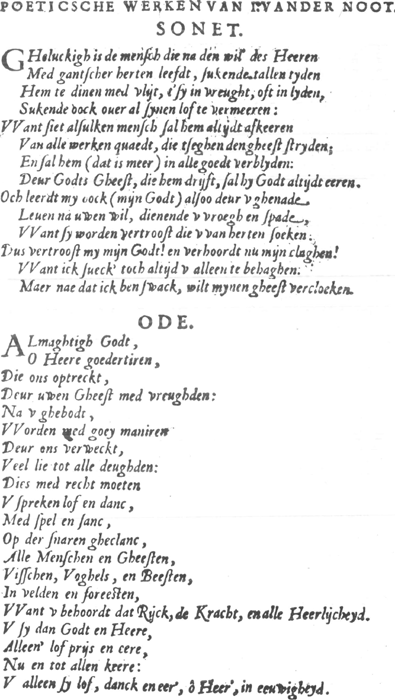 POETICSCHE WERKEN VAN I. VANDER NOOT.
SONET.
GHeluckigh is de mensch die na den wil des Heeren
Med gantscher herten leefdt, sukende t'allen tyden
Hem te dinen med vlijt, t'sy in vreught, oft in lyden,
Sukende oock ouer al synen lof te vermeeren:
VVant siet alsulken mensch sal hem altijdt afkeeren
Van alle werken quaedt, die tseghen dengheest stryden;
En sal hem (dat is meer) in alle goedt verblyden:
Deur Godts Gheest, die hem drijft, sal hy Godt altijdt eeren.
Och leerdt my oock (mijn Godt) alsoo deur v ghenade,
Leuen na uwen wil, dienende v vroegh en spade,
VVant sy worden vertroost die v van herten soeken:
Dus vertroost my mijn Godt! en verhoordt nu mijn claghen!
VVant ick sueck' toch altijd v alleen te behaghen:
Maer nae dat ick ben swack, wilt mynen gheest vercloeken.
ODE.
ALmaghtigh Godt,
O Heere goedertiren,
Die ons optreckt,
Deur uwen Gheest med vreughden:
Na v ghebodt,
VVorden med goey maniren
Deur ons verweckt,
Veel lie tot alle deughden:
Dies med recht moeten
V spreken lof en danc,
Med spel en sanc,
Op der snaren gheclanc,
Alle Menschen en Gheesten,
Visschen, Voghels, en Beesten,
In velden en foreesten,
VVant v behoordt dat Rijck, de Kracht, en alle Heerlijcheyd.
V sy dan Godt en Heere,
Alleen' lof prijs en eere,
Nu en tot allen keere:
V alleen sy lof, danck en eer', ô Heer', in eeuwigheyd.